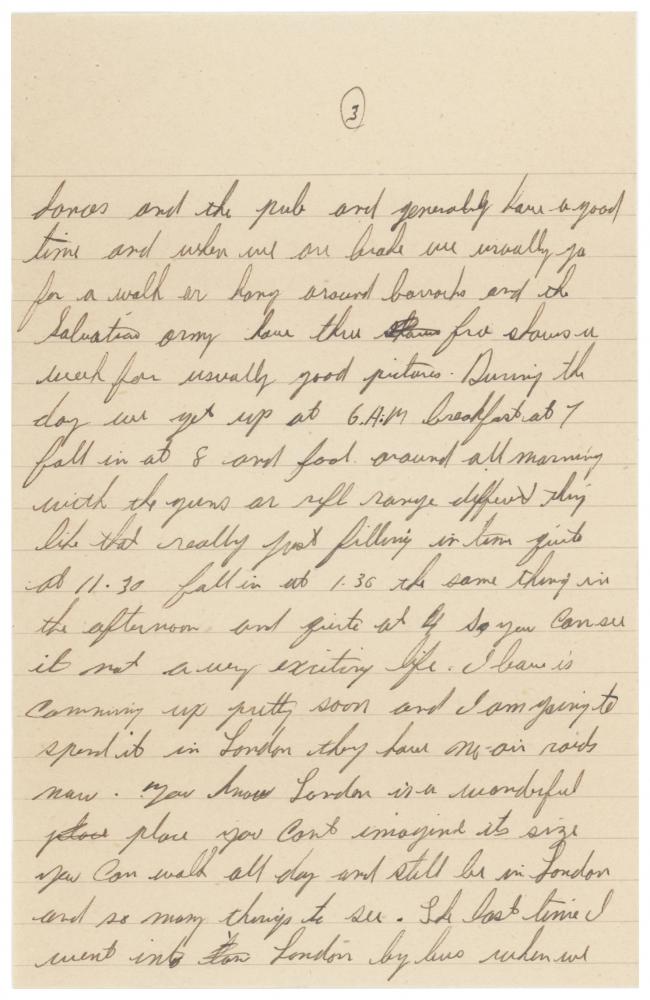 3
dances and the pub and generably have a good
time and when we are brake we usually go
for a walk or hang around barracks and the
Salvation army have three free shows a
week for usually good pictures. During the
day we get up at 6.A.M breakfast at 7
fall in at 8 and fool around all morning
with the guns or rifl range different thing
like that really just filling in time quite
at 11.30 fall in at 1.30 the same thing in
the afternoon and quite at 4 so you can see
it not a very exciting life. Leave is
comming up pretty soon and I am going to
spend it in London they have no air raids
now. You know London is a wonderful
place place you cant imagine its size
you can walk all day and still be in London
and so many things to see. The last time I
went into London by bus when we